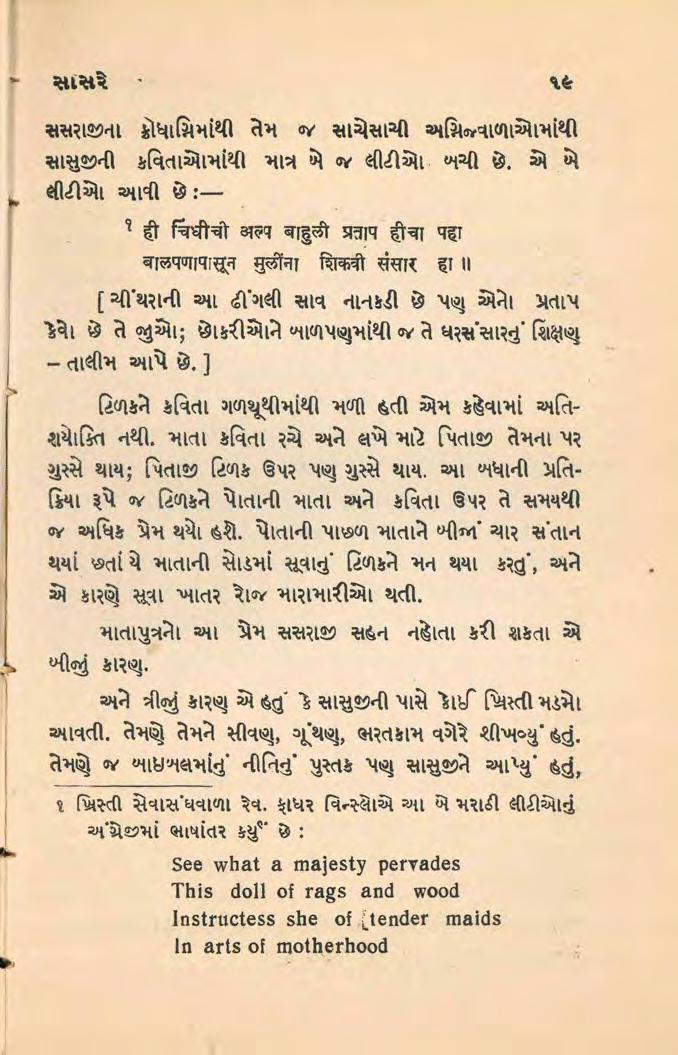 સાસરે ૧૯
સસરાજીના ક્રોધાગ્નિમાંથી તેમ જ સાચેસાચી અગ્નિજ્વાળાઓમાંથી
સાસુજીની કવિતાઓમાંથી માત્ર બે જ લીટીઓ બચી છે. એ બે
લીટીઓ આવી છે :—
१ ही चिंधीची अल्प बाहुली प्रताप हीचा पहा
बालपणापासून मुलींना शिकवी संसार हा ॥
[ ચીંથરાની આ ઢીંગલી સાવ નાનકડી છે પણ એનો પ્રતાપ
કેવો છે તે જુઓ; છોકરીઓને બાળપણમાંથી જ તે ઘરસંસારનું શિક્ષણ
– તાલીમ આપે છે. ]
ટિળકને કવિતા ગળથૂથીમાંથી મળી હતી એમ કહેવામાં અતિ-
શયોક્તિ નથી. માતા કવિતા રચે અને લખે માટે પિતાજી તેમના પર
ગુસ્સે થાય; પિતાજી ટિળક ઉપર પણ ગુસ્સે થાય. આ બધાની પ્રતિ-
ક્રિયા રૂપે જ ટિળકને પોતાની માતા અને કવિતા ઉપર તે સમયથી
જ અધિક પ્રેમ થયો હશે. પોતાની પાછળ માતાને બીજાં ચાર સંતાન
થયાં છતાં યે માતાની સોડમાં સૂવાનું ટિળકને મન થયા કરતું, અને
એ કારણે સૂવા ખાતર રોજ મારામારીઓ થતી.
માતાપુત્રનો આ પ્રેમ સસરાજી સહન નહોતા કરી શકતા એ
બીજું કારણ.
અને ત્રીજું કારણ એ હતું કે સાસુજીની પાસે કોઈ ખ્રિસ્તી મડમો
આવતી. તેમણે તેમને સીવણ, ગૂંથણ, ભરતકામ વગેરે શીખવ્યું હતું.
તેમણે જ બાઇબલમાંનું નીતિનું પુસ્તક પણ સાસુજીને આપ્યું હતું,
१ ખ્રિસ્તી સેવાસંઘવાળા રેવ. ફાધર વિન્સ્લોએ આ બે મરાઠી લીટીઓનું
અંગ્રેજીમાં ભાષાંતર કર્યું છે :
See what a majesty pervades
This doll of rags and wood
Instructess she of tender maids
In arts of motherhood